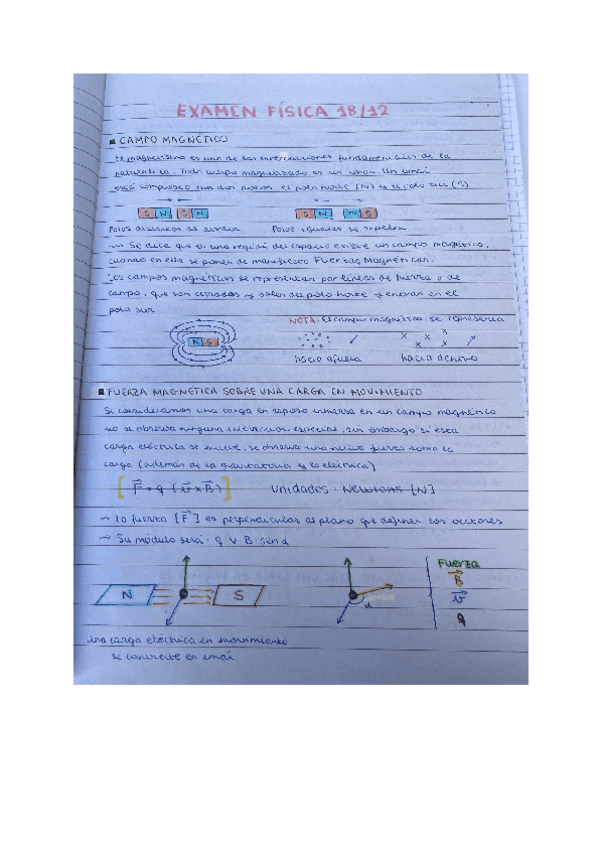 EXAMEN FÍSICA 18/12
■ CAMPO MAGNÉTICO
El magnetismo es una de las interacciones fundamentales de la
naturaleza. Todo cuerpo magnetizado es un imán. Un imán
está compuesto por dos polos: el polo norte (N) y el polo sur (S)
S N S N S N N S
Polos distintos se atraen Polos iguales se repelen
Se dice que en una región del espacio existe un campo magnético,
cuando en ella se ponen de manifiesto Fuerzas Magnéticas.
Los campos magnéticos se representan por líneas de fuerza o de
campo, que son cerradas y salen del polo norte y entran en el
polo sur.
NOTA: El campo magnético se representa
N S
hacia afuera hacia dentro
■ FUERZA MAGNÉTICA SOBRE UNA CARGA EN MOVIMIENTO
Si consideramos una carga en reposo inmersa en un campo magnético
no se observa ninguna interacción especial, sin embargo si esta
carga eléctrica se mueve, se observa una nueva fuerza sobre la
carga (además de la gravitatoria y la eléctrica)
[F = q (v x B)] Unidades: Newtons [N]
→ La fuerza [F] es perpendicular al plano que definen los vectores
→ Su módulo será: q v · B · sen α
N S α
Fuerza
B
v
q
Una carga eléctrica en movimiento
se convierte en imán